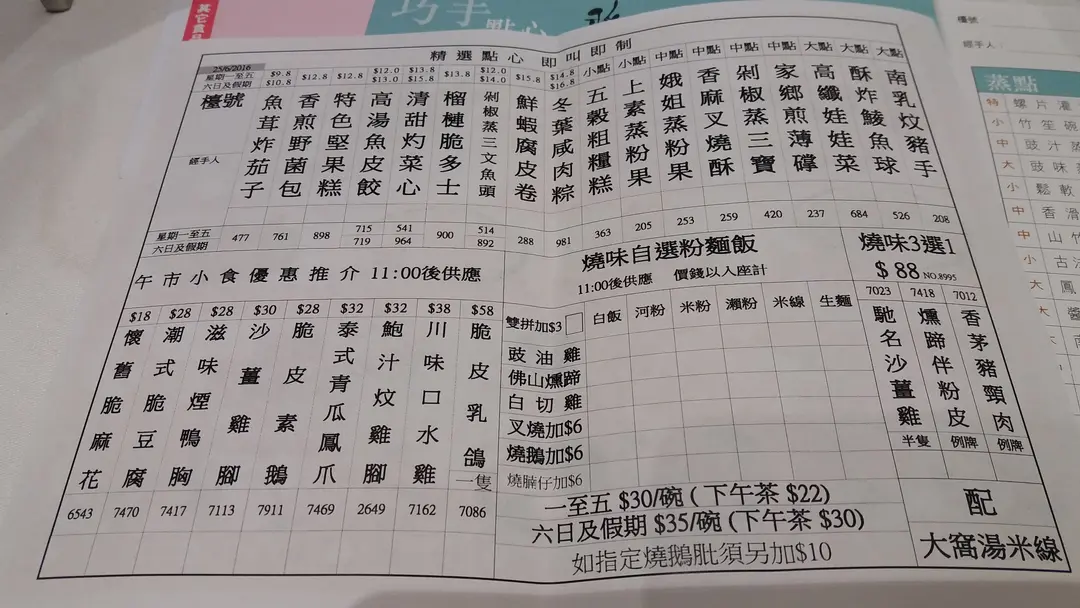 其它貴品
巧手點心
檯號
經手人：
精選點心 即叫即制
25/6/2016
星期一至五 $9.8 $12.8 $12.8 $12.0 $13.8 $13.8 $12.0 $15.8 $14.8 小點 小點 中點 中點 中點 中點 大點 大點 大點
六日及假期 $10.8 $13.0 $15.8 $14.0 $16.8
檯號
經手人
魚茸炸茄子
香煎野菌包
特色堅果糕
高湯魚皮餃
清甜灼菜心
榴槤脆多士
剁椒蒸三文魚頭
鮮蝦腐皮卷
冬葉咸肉粽
五穀粗糧糕
上素蒸粉果
娥姐蒸粉果
香麻叉燒酥
剁椒蒸三寶
家鄉煎薄罉
高纖娃娃菜
酥炸鯪魚球
南乳炆豬手
星期一至五 477 761 898 715 541 900 514 288 981 363 205 253 259 420 237 684 526 208
六日及假期 719 964 892
午市小食優惠推介 11:00後供應
$18 $28 $28 $30 $28 $32 $32 $38 $58
懷舊脆麻花
潮式脆豆腐
滋味煙鴨胸
沙薑雞腳
脆皮素鵝
泰式青瓜鳳爪
鮑汁炆雞腳
川味口水雞
脆皮乳鴿一隻
6543 7470 7417 7113 7911 7469 2649 7162 7086
燒味自選粉麵飯
11:00後供應 價錢以入座計
雙拼加$3 白飯 河粉 米粉 瀨粉 米線 生麵
豉油雞
佛山燻蹄
白切雞
叉燒加$6
燒鵝加$6
燒腩仔加$6
一至五 $30/碗 (下午茶 $22)
六日及假期 $35/碗 (下午茶 $30)
如指定燒鵝肶須另加$10
燒味3選1
$88 NO.8995
7023 7418 7012
馳名沙薑雞 半隻
燻蹄伴粉皮 例牌
香茅豬頸肉 例牌
配
大窩湯米線
蒸點
特 螺片灌
小 竹笙碗
中 豉汁蒸
大 豉味
小 鬆軟
中 香滑
中 山竹
小 古法
大 鳳
大 醬